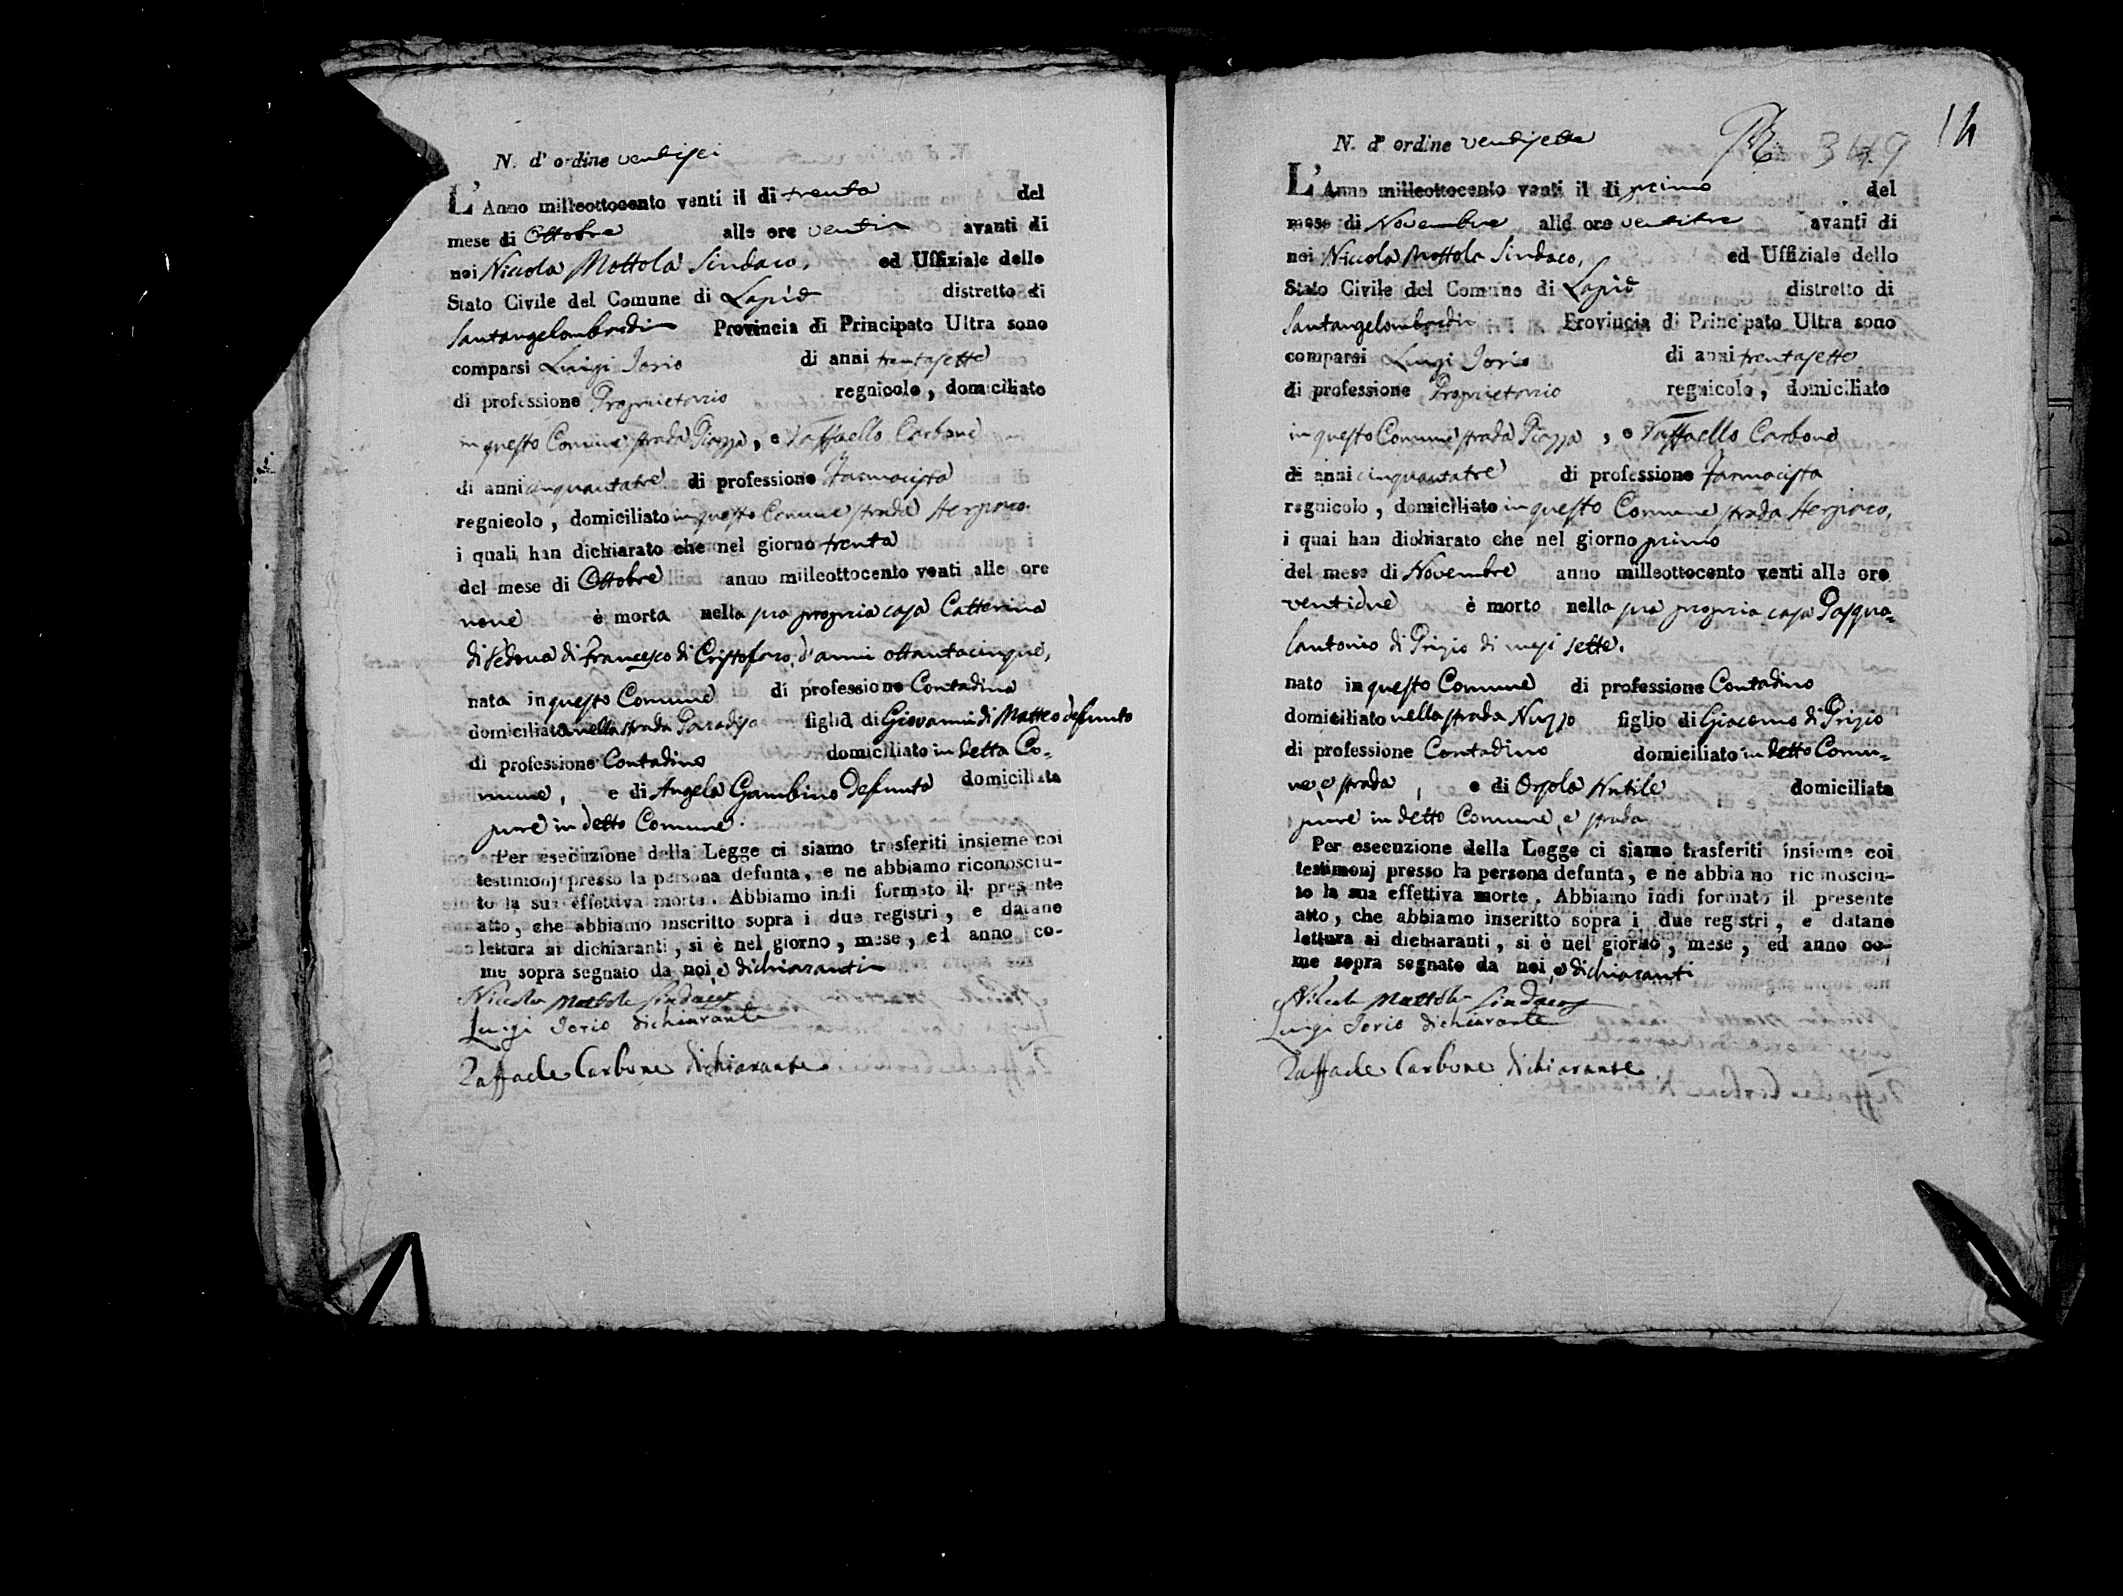 N. d' ordine ventisei
L' Anno milleottocento venti il di trenta del
mese di Ottobre alle ore venti avanti di
noi Niccola Mottola Sindaco, ed Uffiziale dello
Stato Civile del Comune di Lapio distretto di
Santangelombardi Provincia di Principato Ultra sono
comparsi Luigi Iorio di anni trentasette
di professione Proprietario regnicolo, domiciliato
in questo Comune strada Piazza, e Raffaello Carbone
di anni cinquantatre di professione Farmacista
regnicolo, domiciliato in questo Comune strada
i quali han dichiarato che nel giorno trenta
del mese di Ottobre anno milleottocento venti alle ore
nove è morta nella sua propria casa Catterina
di vedova di Francesco di Cristofaro, d'anni ottantacinque,
nata in questo Comune di professione Contadina
domiciliata nella strada Paradiso figlia di Giovanni di Matteo defunto
di professione Contadino domiciliato in detta Co-
mune, e di Angela Gambino defunta domiciliata
pure in detto Comune.
Per esecuzione della Legge ci siamo trasferiti insieme coi
testimonj presso la persona defunta, e ne abbiamo riconosciu-
to la sua effettiva morte. Abbiamo indi formato il presente
atto, che abbiamo inscritto sopra i due registri, e datane
lettura ai dichiaranti, si è nel giorno, mese, ed anno co-
me sopra segnato da noi, e dichiaranti
Niccola Mottola Sindaco
Luigi Iorio dichiarante
Raffaele Carbone dichiarante
14
N. d' ordine ventisette
L' Anno milleottocento venti il di primo del
mese di Novembre alle ore ventitre avanti di
noi Niccola Mottola Sindaco, ed Uffiziale dello
Stato Civile del Comune di Lapio distretto di
Santangelombardi Provincia di Principato Ultra sono
comparsi Luigi Iorio di anni trentasette
di professione Proprietario regnicolo, domiciliato
in questo Comune strada Piazza, e Raffaello Carbone
di anni cinquantatre di professione Farmacista
regnicolo, domiciliato in questo Comune strada
i quai han dichiarato che nel giorno primo
del mese di Novembre anno milleottocento venti alle ore
ventidue è morto nella sua propria casa Pasqua-
lantonio di Prizio di mesi sette.
nato in questo Comune di professione Contadino
domiciliato nella strada Nuzzo figlio di Giacomo di Prizio
di professione Contadino domiciliato in detto Comu-
ne, e strada, e di Orsola domiciliata
pure in detto Comune, e strada
Per esecuzione della Legge ci siamo trasferiti insieme coi
testimonj presso la persona defunta, e ne abbiano riconosciu-
to la sua effettiva morte. Abbiamo indi formato il presente
atto, che abbiamo inscritto sopra i due registri, e datane
lettura ai dichiaranti, si è nel giorno, mese, ed anno co-
me sopra segnato da noi, e dichiaranti
Niccola Mottola Sindaco
Luigi Iorio dichiarante
Raffaele Carbone dichiarante